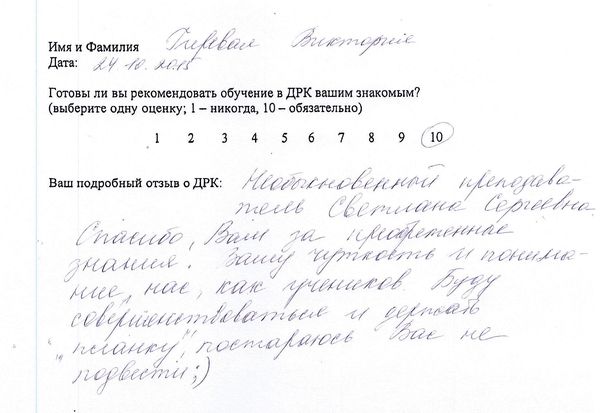 Имя и Фамилия Гиревая Виктория
Дата: 24.10.2015
Готовы ли вы рекомендовать обучение в ДРК вашим знакомым?
(выберите одну оценку; 1 – никогда, 10 – обязательно)
1 2 3 4 5 6 7 8 9 10
Ваш подробный отзыв о ДРК: Необыкновенный преподава-
тель Светлана Сергеевна
Спасибо, Вам за приобретенные
знания. Вашу чуткость и понима-
ние, нас, как учеников. Буду
совершенствоваться и держать
"планку", постараюсь Вас не
подвести;)